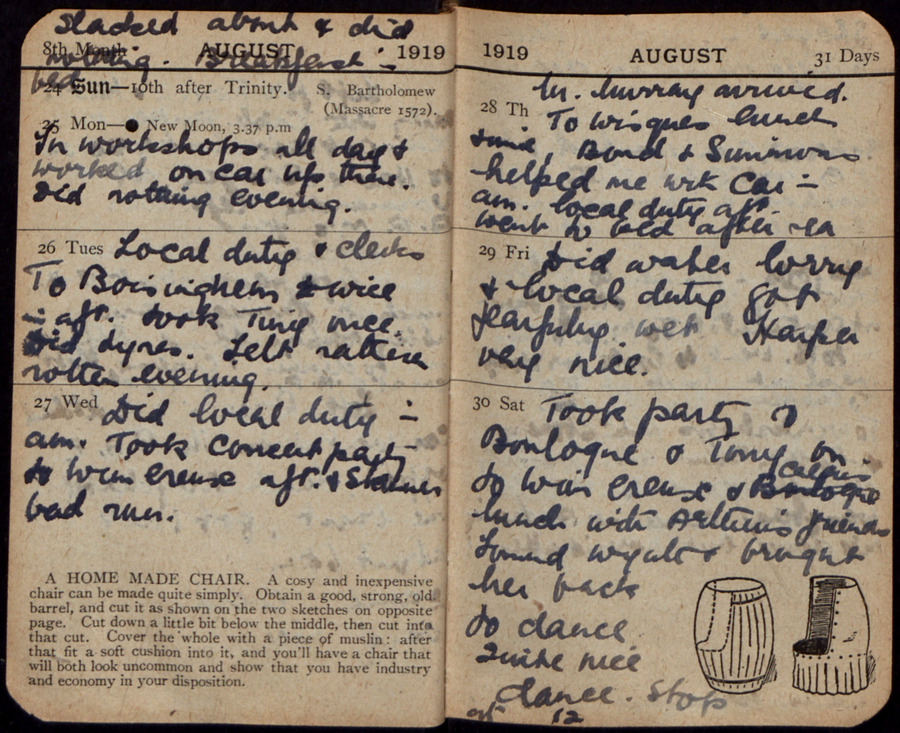 Slacked about & did
8th Month AUGUST 1919
nothing. Breakfast in
bed
24 Sun—10th after Trinity. S. Bartholomew
(Massacre 1572).
25 Mon—● New Moon, 3.37 p.m
In workshops all day &
worked on car up there.
Did nothing evening.
26 Tues Local duty & clerks
To Boisinghem twice
in aft. took Tiny once.
Did tyres. Felt rather
rotten evening.
27 Wed Did local duty in
am. Took concert party
to Wimereux aft. & Staines
bad run.
A HOME MADE CHAIR. A cosy and inexpensive
chair can be made quite simply. Obtain a good, strong, old
barrel, and cut it as shown on the two sketches on opposite
page. Cut down a little bit below the middle, then cut into
that cut. Cover the whole with a piece of muslin: after
that fit a soft cushion into it, and you'll have a chair that
will both look uncommon and show that you have industry
and economy in your disposition.
1919 AUGUST 31 Days
Mr. Murray arrived.
28 Th To Wisques lunch
time. Bond & Simmons
helped me with car in
am. local duty aft.
Went to bed after tea
29 Fri Did water lorry
& local duty got
fearfully wet Harper
very nice.
30 Sat Took party to
Boulogne & Tiny on
to Wimereux & Calais
Boulogne
lunch with Arthur's friends
found Wyatt & brought
her back
to dance
Quite nice
dance. Stop
at 12